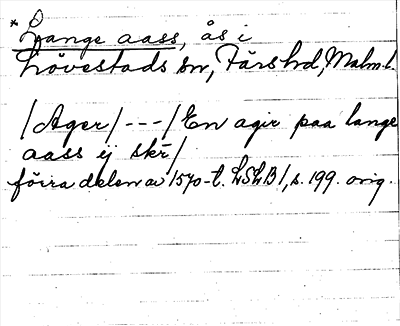 * Lange aass, ås i
Lövestads sn, Färs hd, Malm. l.
/Ager/ --- /En agir paa lange
aass ej skr/
förra delen av 1570-t. LSLB1, s. 199. orig.